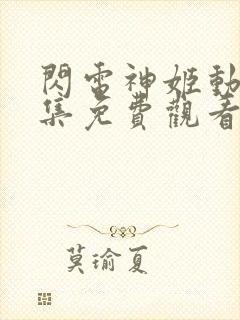 閃雷神姬動
集免費觀看
莫瑜夏